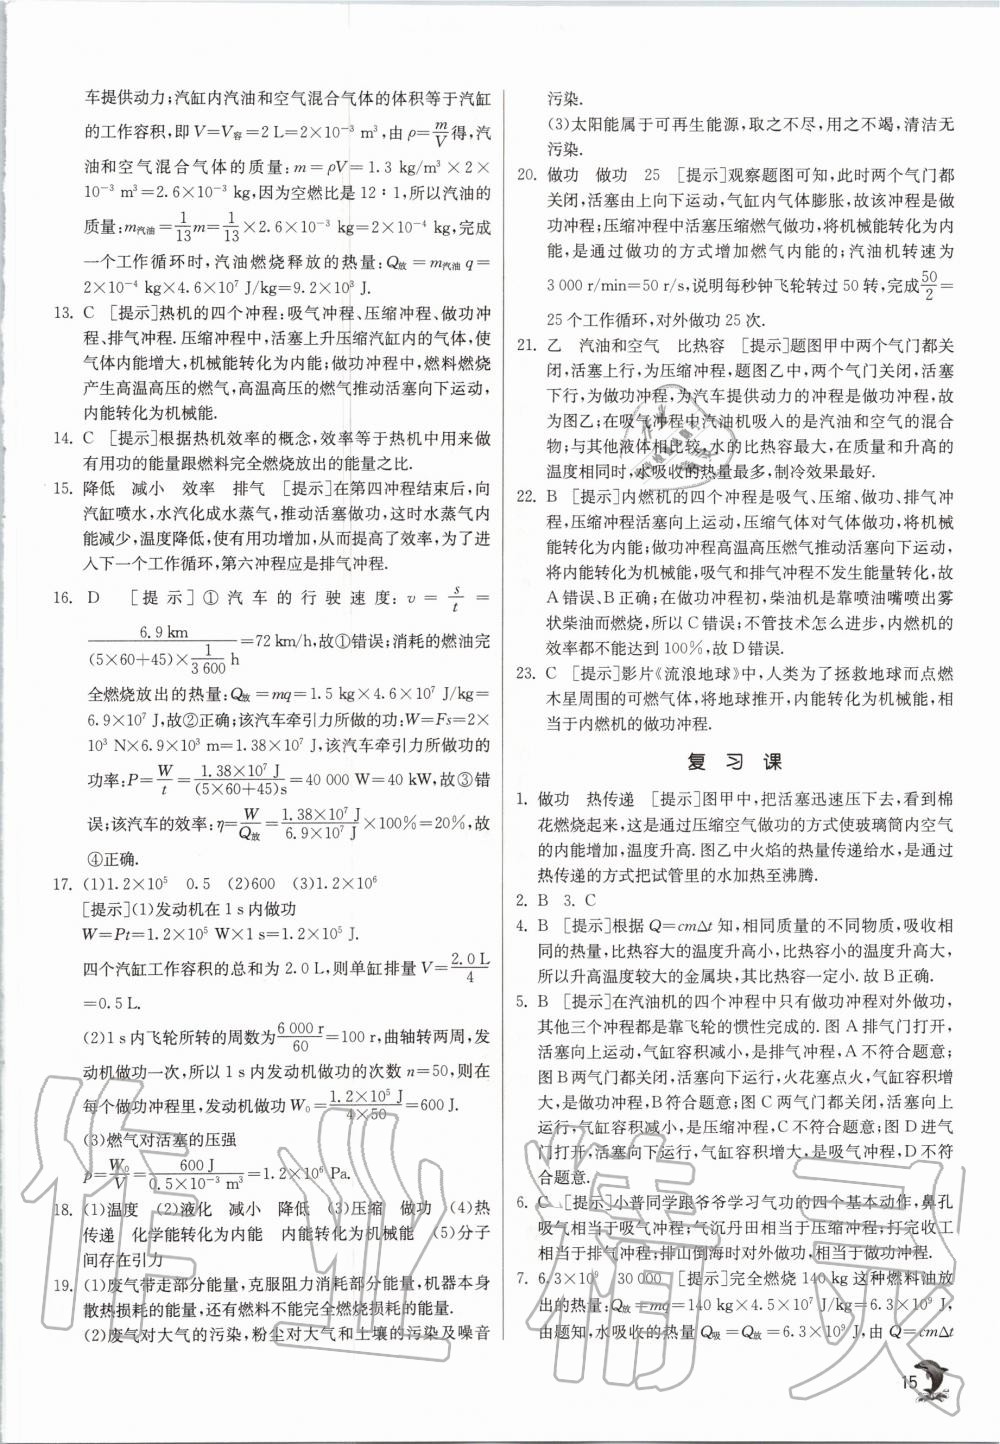 车提供动力;汽缸内汽油和空气混合气体的体积等于汽缸
的工作容积,即V=V容=2 L=2×10⁻³ m³,由ρ=m/V得,汽
油和空气混合气体的质量:m=ρV=1.3 kg/m³×2×
10⁻³ m³=2.6×10⁻³ kg,因为空燃比是12∶1,所以汽油的
质量:m汽油=1/13m=1/13×2.6×10⁻³ kg=2×10⁻⁴ kg,完成
一个工作循环时,汽油燃烧释放的热量:Q放=m汽油q=
2×10⁻⁴ kg×4.6×10⁷ J/kg=9.2×10³ J.
13. C [提示]热机的四个冲程:吸气冲程、压缩冲程、做功冲
程、排气冲程.压缩冲程中,活塞上升压缩汽缸内的气体,使
气体内能增大,机械能转化为内能;做功冲程中,燃料燃烧
产生高温高压的燃气,高温高压的燃气推动活塞向下运动,
内能转化为机械能.
14. C [提示]根据热机效率的概念,效率等于热机中用来做
有用功的能量跟燃料完全燃烧放出的能量之比.
15. 降低 减小 效率 排气 [提示]在第四冲程结束后,向
汽缸喷水,水汽化成水蒸气,推动活塞做功,这时水蒸气内
能减少,温度降低,使有用功增加,从而提高了效率,为了进
入下一个工作循环,第六冲程应是排气冲程.
16. D [提示]①汽车的行驶速度:v=s/t=
6.9 km/((5×60+45)×1/3 600 h)=72 km/h,故①错误;消耗的燃油完
全燃烧放出的热量:Q放=mq=1.5 kg×4.6×10⁷ J/kg=
6.9×10⁷ J,故②正确;该汽车牵引力所做的功:W=Fs=2×
10³ N×6.9×10³ m=1.38×10⁷ J,该汽车牵引力所做功的
功率:P=W/t=1.38×10⁷ J/(5×60+45)s=40 000 W=40 kW,故③错
误;该汽车的效率:η=W/Q放=1.38×10⁷ J/6.9×10⁷ J×100%=20%,故
④正确.
17. (1)1.2×10⁵ 0.5 (2)600 (3)1.2×10⁶
[提示](1)发动机在1 s内做功
W=Pt=1.2×10⁵ W×1 s=1.2×10⁵ J.
四个汽缸工作容积的总和为2.0 L,则单缸排量V=2.0 L/4
=0.5 L.
(2)1 s内飞轮所转的周数为6 000 r/60=100 r,曲轴转两周,发
动机做功一次,所以1 s内发动机做功的次数n=50,则在
每个做功冲程里,发动机做功W₀=1.2×10⁵ J/4×50=600 J.
(3)燃气对活塞的压强
p=W₀/V=600 J/0.5×10⁻³ m³=1.2×10⁶ Pa.
18. (1)温度 (2)液化 减小 降低 (3)压缩 做功 (4)热
传递 化学能转化为内能 内能转化为机械能 (5)分子
间存在引力
19. (1)废气带走部分能量,克服阻力消耗部分能量,机器本身
散热损耗的能量,还有燃料不能完全燃烧损耗的能量.
(2)废气对大气的污染,粉尘对大气和土壤的污染及噪音
污染.
(3)太阳能属于可再生能源,取之不尽,用之不竭,清洁无
污染.
20. 做功 做功 25 [提示]观察题图可知,此时两个气门都
关闭,活塞由上向下运动,气缸内气体膨胀,故该冲程是做
功冲程;压缩冲程中活塞压缩燃气做功,将机械能转化为内
能,是通过做功的方式增加燃气内能的;汽油机转速为
3 000 r/min=50 r/s,说明每秒钟飞轮转过50转,完成50/2=
25个工作循环,对外做功25次.
21. 乙 汽油和空气 比热容 [提示]题图甲中两个气门都关
闭,活塞上行,为压缩冲程,题图乙中,两个气门关闭,活塞
下行,为做功冲程,为汽车提供动力的冲程是做功冲程,故
为图乙;在吸气冲程中汽油机吸入的是汽油和空气的混合
物;与其他液体相比较,水的比热容最大,在质量和升高的
温度相同时,水吸收的热量最多,制冷效果最好.
22. B [提示]内燃机的四个冲程是吸气、压缩、做功、排气冲
程,压缩冲程活塞向上运动,压缩气体对气体做功,将机械
能转化为内能;做功冲程高温高压燃气推动活塞向下运动,
将内能转化为机械能,吸气和排气冲程不发生能量转化,故
A错误、B正确;在做功冲程初,柴油机是靠喷油嘴喷出雾
状柴油而燃烧,所以C错误;不管技术怎么进步,内燃机的
效率都不能达到100%,故D错误.
23. C [提示]影片《流浪地球》中,人类为了拯救地球而点燃
木星周围的可燃气体,将地球推开,内能转化为机械能,相
当于内燃机的做功冲程.
复习课
1. 做功 热传递 [提示]图甲中,把活塞迅速压下去,看到棉
花燃烧起来,这是通过压缩空气做功的方式使玻璃筒内空气
的内能增加,温度升高.图乙中火焰的热量传递给水,是通过
热传递的方式把试管里的水加热至沸腾.
2. B 3. C
4. B [提示]根据Q=cmΔt知,相同质量的不同物质,吸收相
同的热量,比热容大的温度升高小,比热容小的温度升高大,
所以升高温度较大的金属块,其比热容一定小.故B正确.
5. B [提示]在汽油机的四个冲程中只有做功冲程对外做功,
其他三个冲程都是靠飞轮的惯性完成的.图A排气门打开,
活塞向上运动,气缸容积减小,是排气冲程,A不符合题意;
图B两气门都关闭,活塞向下运行,火花塞点火,气缸容积增
大,是做功冲程,B符合题意;图C两气门都关闭,活塞向上
运行,气缸容积减小,是压缩冲程,C不符合题意;图D进气
门打开,活塞向下运行,气缸容积增大,是吸气冲程,D不符
合题意.
6. C [提示]小普同学跟爷爷学习气功的四个基本动作,鼻孔
吸气相当于吸气冲程;气沉丹田相当于压缩冲程;打完收工
相当于排气冲程;排山倒海时对外做功,相当于做功冲程.
7. 6.3×10⁹ 30 000 [提示]完全燃烧140 kg这种燃料油放
出的热量:Q放=mq=140 kg×4.5×10⁷ J/kg=6.3×10⁹ J,
由题知,水吸收的热量Q吸=Q放=6.3×10⁹ J,由Q=cmΔt
15
作业精灵